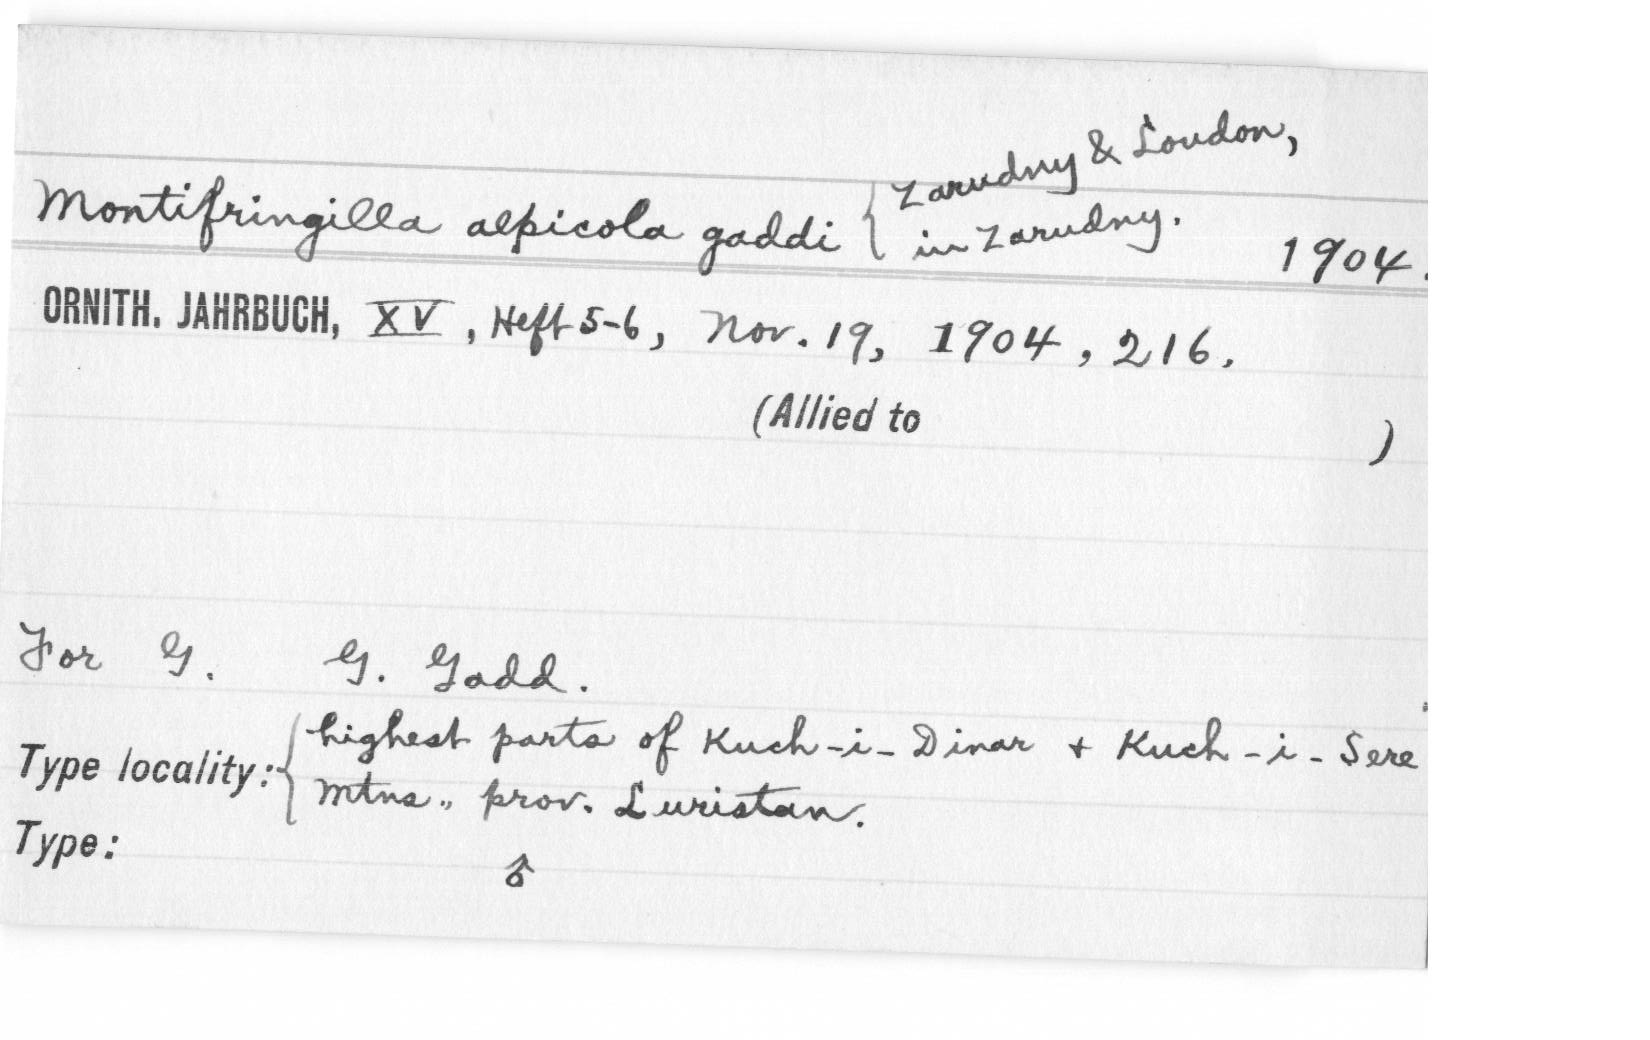 Montifringilla alpicola gaddi { Zarudny & Loudon,
in Zarudny. 1904.
ORNITH. JAHRBUCH, XV, Heft 5-6, Nov. 19, 1904, 216.
(Allied to )
For G. G. Gadd.
Type locality: { highest parts of Kuch-i-Dinar + Kuch-i-Sere
Mtns., prov. Luristan.
Type: ♂